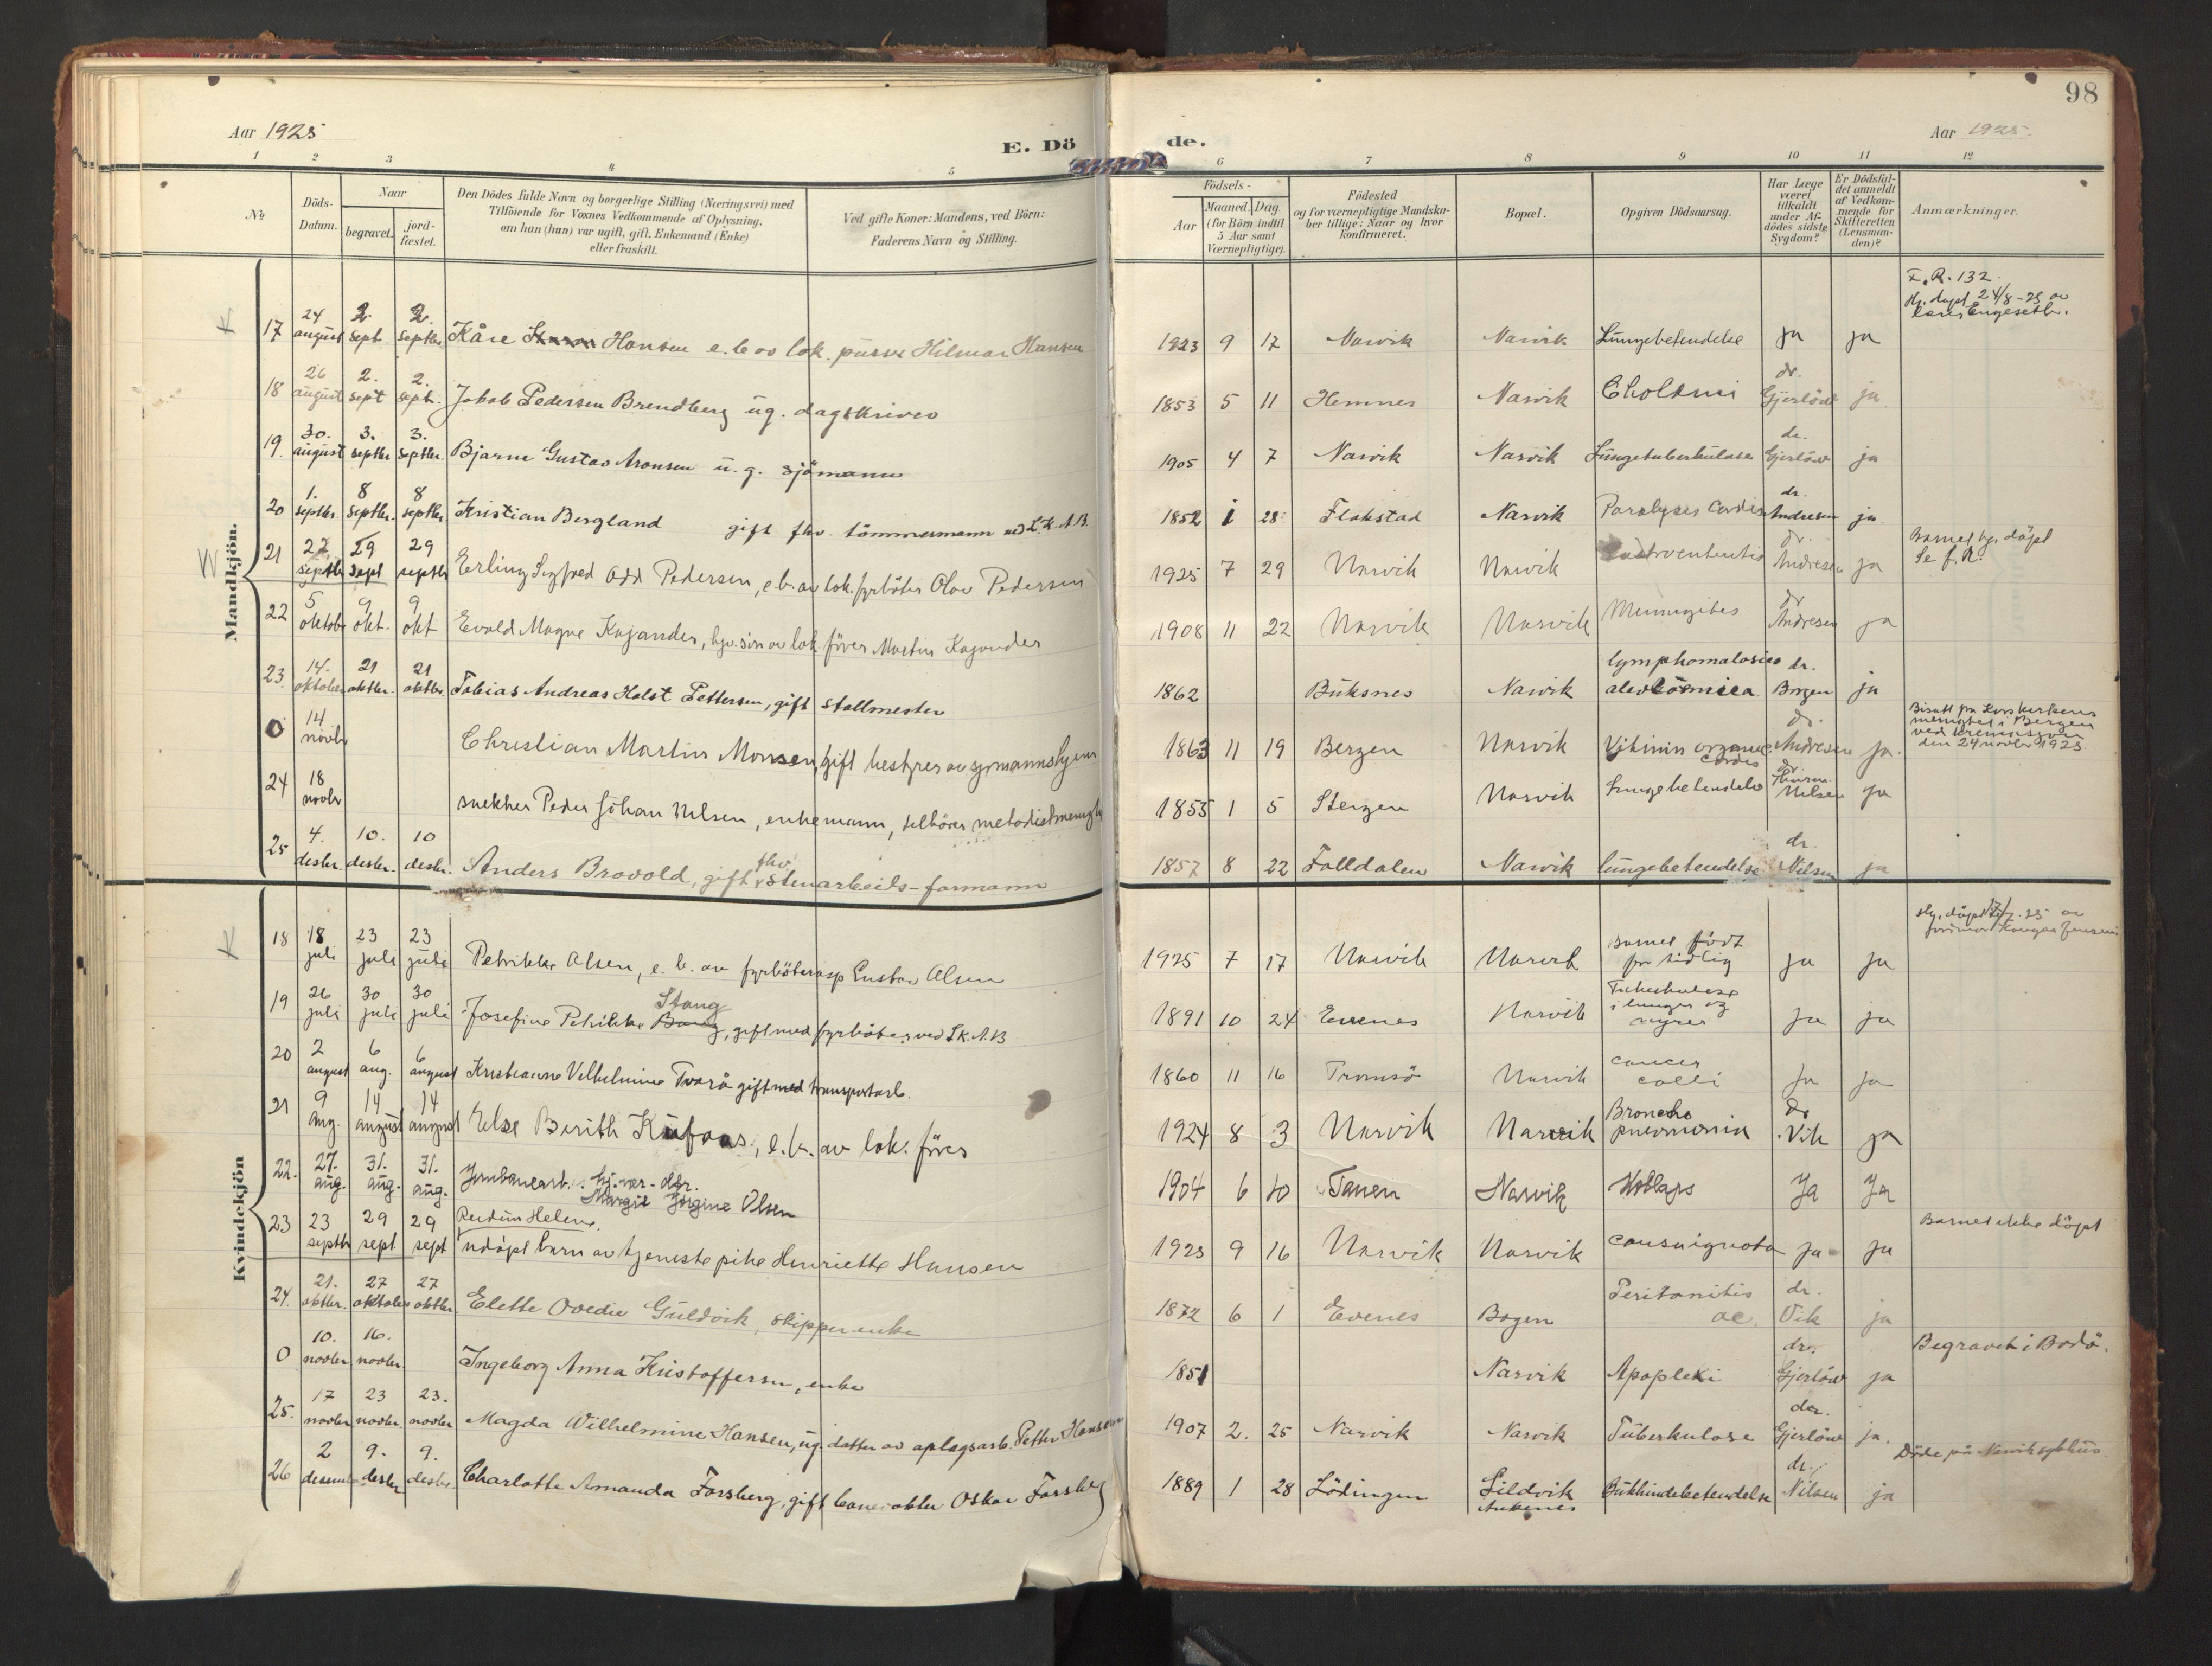 98
Aar 1925
E. Dö
de.
Aar 1925
1 2 3 4 5 6 7 8 9 10 11 12
No
Döds-
Datum.
Naar
begravet.
jord-
fæstet.
Den Dödes fulde Navn og borgerlige Stilling (Næringsvei) med
Tilföiende for Voxnes Vedkommende af Oplysning,
om han (hun) var ugift, gift, Enkemand (Enke)
eller fraskilt.
Ved gifte Koner: Mandens, ved Börn:
Faderens Navn og Stilling.
Födsels-
Aar
Maaned. Dag
(for Börn indtil
5 Aar samt
Værnepligtige).
Födested
og for værnepligtige Mandska-
ber tillige: Naar og hvor
konfirmeret.
Bopæl.
Opgiven Dödsaarsag.
Har Læge
været
tilkaldt
under Af-
dödes sidste
Sygdom?
Er Dödsfal-
det anmeldt
af Vedkom-
mende for
Skifteretten
(Lensman-
den)?
Anmærkninger.
Mandkjön.
K
17 24 august 2. sept. 2. septbr. Kåre Hansen e. b. av lok. pusser Hilmar Hansen 1923 9 17 Narvik Narvik Lungebetendelse ja ja
F. R. 132
Hj. døpt 24/8-23 av
18 26 august 2. sept 2. sept. Jakob Pedersen Brendberg ug. dagskriver 1853 5 11 Hemnes Narvik dr. Gjerløw ja
19. 30. august 3. septbr 3. septbr. Bjarne Gustav Aronsen u. g. sjömann 1905 4 7 Narvik Narvik Lungetuberkulose dr. Gjerløw ja
20 1. septbr. 8 septbr. 8 septbr Kristian Bergland gift fhv. tömmermann ved L.K.A.B. 1852 1 28 Flakstad Narvik Paralyses cordis dr. Andresen ja
W
21 22. septbr 29 sept 29 septbr Erling Sigfred Odd Pedersen, e. b. av lok. fyrböter Olav Pedersen 1925 7 29 Narvik Narvik dr. Andresen ja
Barnet hj. döpt
Se f. R.
22 5 oktobr 9 okt. 9 okt Evald Magne Kajander, hjv. sön av lok. förer Martin Kajander 1908 11 22 Narvik Narvik Meningites dr Andresen ja
23. 14. oktober 21 oktbr. 21 oktbr. Tobias Andreas Holst Pettersen, gift stallmester 1862 Buksnes Narvik dr. Borgen ja
0 14 novbr Christian Martin Monsen, gift bestyrer av sjømannshjem 1863 11 19 Bergen Narvik Vitium organic cordis dr. Andresen ja.
Bisatt fra Korskirkens
menighet i Bergen
ved kremasjon
den 24 novbr 1925.
24 18 novbr snekker Peder Johan Nilsen, enkemann, tilhører metodistmenigh 1855 1 5 Steigen Narvik Lungebetendelse dr. Nilsen ja
25 4. desbr. 10. desbr. 10 desbr. Anders Brovold, gift fhv. stenarbeids-formann 1857 8 22 Folldalen Narvik lungebetendelse dr. Nilsen ja
Kvindekjön
K
18 18 juli 23 juli 23 juli Petrikke Olsen, e. b. av fyrböterasp Gustav Olsen 1925 7 17 Narvik Narvik Barnet født for tidlig ja ja
Hj. døpt 17/7-25 av
19 26 juli 30 juli 30 juli Josefine Petrikke Stang, gift med fyrböter ved L.K.A.B 1891 10 24 Evenes Narvik Tuberkulose i lunger og nyrer ja ja
20 2 august 6 aug. 6 august Kristianne Velhelmine Tvarå gift med transportarb. 1860 11 16 Tromsö Narvik cancer colli ja ja
21 9 aug. 14 august 14 august Else Berith Kufaas, e. b. av lok. förer 1924 8 3 Narvik Narvik Broncho pneumonia dr. Vik ja
22. 27. aug. 31. aug. 31. aug. Jernbanearb. hj.vær. dtr. Margit Jörgine Olsen 1904 6 10 Tanen Narvik Kollaps Ja Ja
23 23 septbr 29 sept 29 sept Reidun Helene.
udöpt barn av tjenestepike Henriette Hansen 1925 9 16 Narvik Narvik causa ignota ja ja
Barnet ikke döpt
24. 21. oktbr. 27 oktober 27 oktbr. Elette Ovedie Guldvik, skipperenke 1872 6 1 Evenes Bogen Peritonitis ac. dr. Vik ja
0 10. novbr 16. novbr. Ingeborg Anna Kristoffersen, enke 1851 Narvik Apopleksi dr. Gjerlöw ja
Begravet i Bodö.
25. 17 novbr 23 novbr. 23. novbr Magda Wilhelmine Hansen, ug. datter av oplagsarb. Petter Hansen 1907 2. 25 Narvik Narvik Tuberkulose dr. Gjerlöw ja.
26 2 desember 9. desbr 9. desbr. Charlotte Amanda Forsberg, gift banevokter Oskar Forsberg 1889 1 28 Lödingen Sildvik Ankenes Bukhindebetendelse dr. Nilsen ja
Döde på Narvik sykehus.